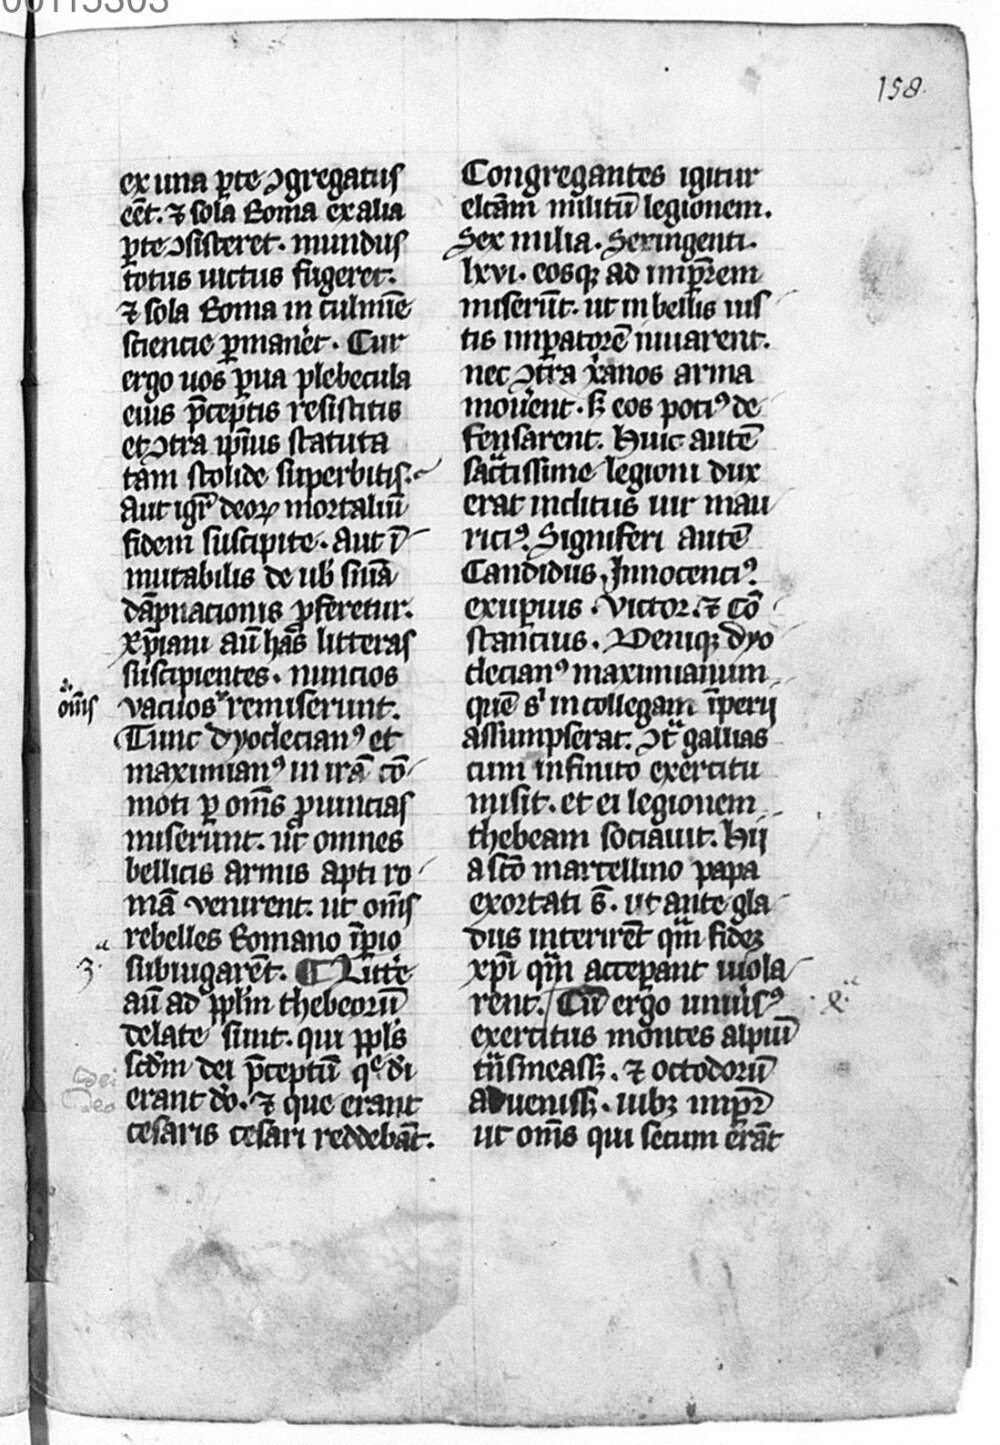 00115303
158.
ex una ꝑte ↄgregatus
eēt. ⁊ sola Roma ex alia
ꝑte ↄsisteret. mundus
totus uictus fugeret.
⁊ sola Roma in culmīe
sciencie ꝑmanet. Cur
ergo uos ꝑua plebecula
eius p̄ceptis resistitis
et ↄtra ip̄ius statuta
tam stolide superbitis.
Aut igr̄ deoꝝ mortaliū
fidem suscipite. Aut ī
mutabilis de uob̄ snīa
dāpnacionis ꝓferetur.
xp̄iani aū has litteras
suscipientes. nuncios
vacuos remiserunt.
om̄s
Tunc dyoclecianꝰ et
maximianꝰ in irā cō
moti ꝑ om̄s ꝓuincias
miserunt. ut omnes
bellicis armis apti ro
mā venirent. ut om̄s
rebelles Romano īꝑio
subiugarēt. ¶ Litt̄e
aū ad ppl̄m thebeorū
delate sunt. qui ppl̄s
scd̄m dei p̄ceptū q̄ dei
erant deo. ⁊ que erant
cesaris cesari reddebāt.
dei
deo
Congregantes igitur
elc̄am militū legionem.
Sex milia. Sexingenti.
lxvi. eosqꝫ ad imꝑ̄rem
miserūt. ut in bellis ius
tis imꝑatorē iuuarent.
nec ↄtra x̄anos arma
mouerent. sꝫ eos potiꝰ de
fensarent. Huic autē
sāctissime legioni dux
erat inclitus uir mau
riciꝰ. Signiferi autē
Candidus. Innocenciꝰ.
exuꝑius. victor. ⁊ Cō
stancius. Deniqꝫ dyo
clecianꝰ maximianum
quē sⁱ in collegam īperij
assumpserat. ↄtᵃ gallias
cum infinito exercitu
misit. et ei legionem
thebeam sociauit. Hij
a sc̄o marcellino papa
exortati s̄. ut ante gla
diis interirēt qm̄ fidē
xp̄i qm̄ acceꝑant uiola
rent. Cū ergo uniūsꝰ
exercitus montes alpiū
t̄nsmeassꝫ. ⁊ octodorū
Aduenissꝫ. iubꝫ imꝑ̄r
ut om̄s qui secum erāt